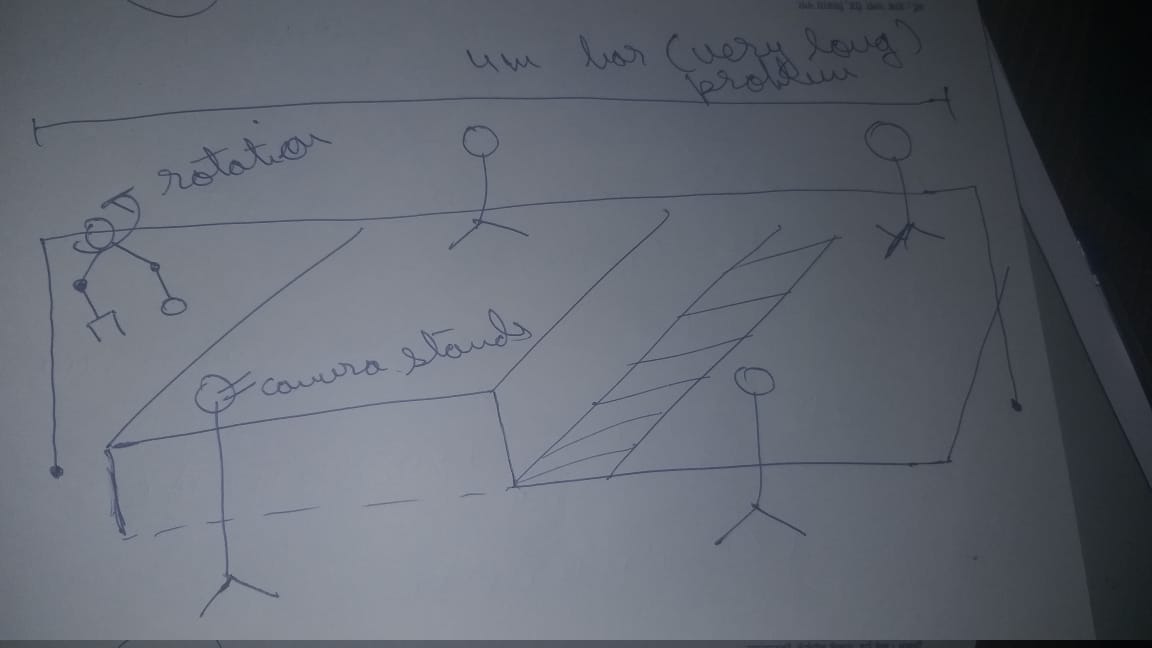 4m bar (very long)
problem
rotation
camera stands